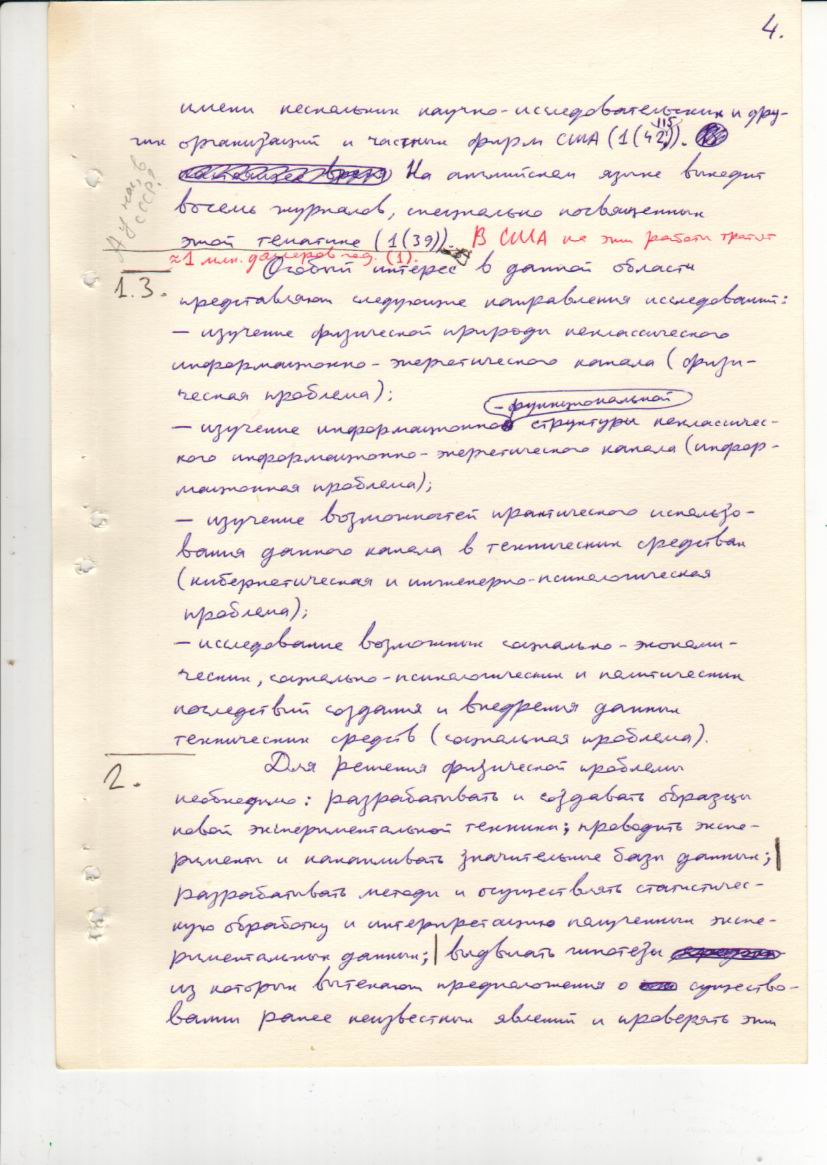 4.
имени нескольких научно-исследовательских и дру-
гих организаций и частных фирм США (1(42)).
115
На английском языке выходит
А у нас в СССР?
восемь журналов, специально посвященных
этой тематике (1(39)). В США на эти работы тратят
≈1 млн. долларов год. (1).
1.3. Особый интерес в данной области
представляют следующие направления исследований:
– изучение физической природы неклассического
информационно-энергетического канала (физи-
ческая проблема);
-функциональной
– изучение информационно структуры неклассичес-
кого информационно-энергетического канала (инфор-
мационная проблема);
– изучение возможностей практического использо-
вания данного канала в технических средствах
(кибернетическая и инженерно-психологическая
проблема);
– исследование возможных социально-экономи-
ческих, социально-психологических и политических
последствий создания и внедрения данных
технических средств (социальная проблема).
2. Для решения физической проблемы
необходимо: разрабатывать и создавать образцы
новой экспериментальной техники; проводить экспе-
рименты и накапливать значительные базы данных;
разрабатывать методы и осуществлять статистичес-
кую обработку и интерпретацию полученных экспе-
риментальных данных; выдвигать гипотезы
из которых вытекают предположения о существо-
вании ранее неизвестных явлений и проверять эти